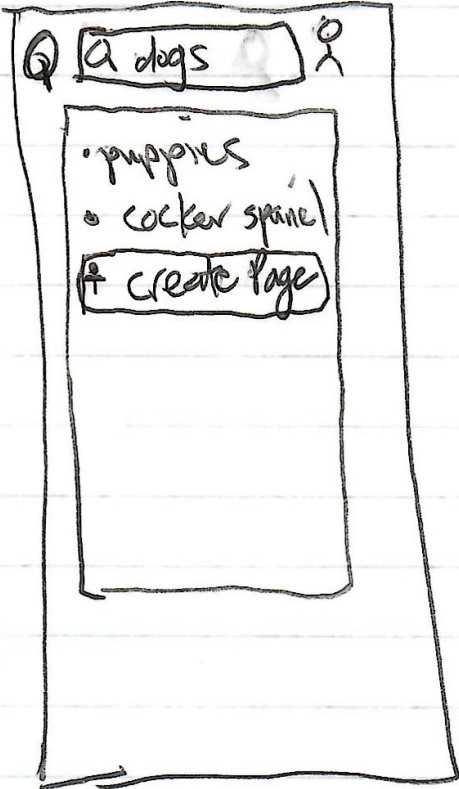 Q dogs
• puppies
• cocker spinel
+ create Page